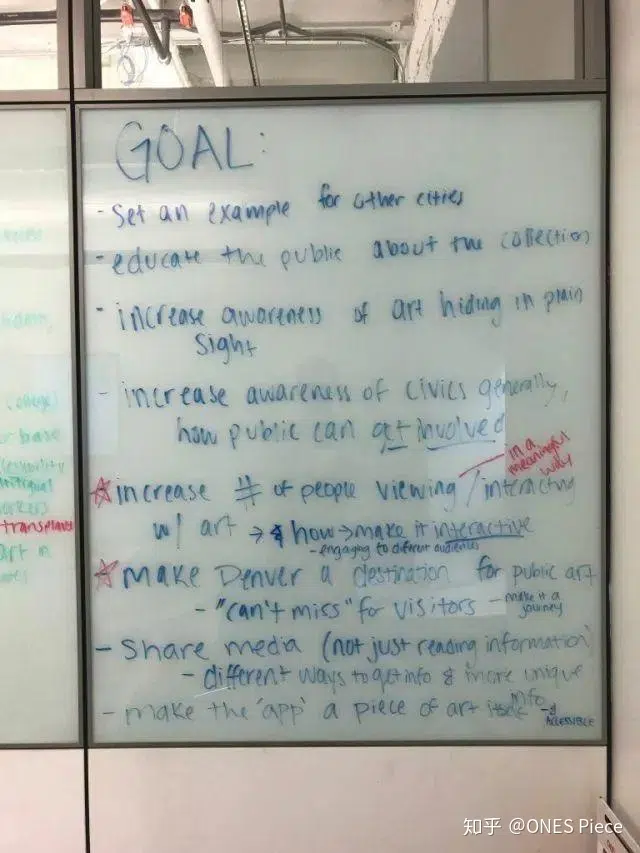 GOAL:
- Set an example for other cities
- educate the public about the collection
- increase awareness of art hiding in plain
sight
- increase awareness of civics generally,
how public can get involved
in a
meaningful
way
☆ increase # of people viewing / interacting
w/ art → how → make it interactive
- engaging to different audiences
☆ MAKE Denver a destination for public art
- "can't miss" for visitors - make it a
journey
- Share media (not just reading information)
- different ways to get info & more unique
info
- make the 'app' a piece of art itself - &
ACCESSIBLE
or base
transplants
art in
知乎 @ONES Piece